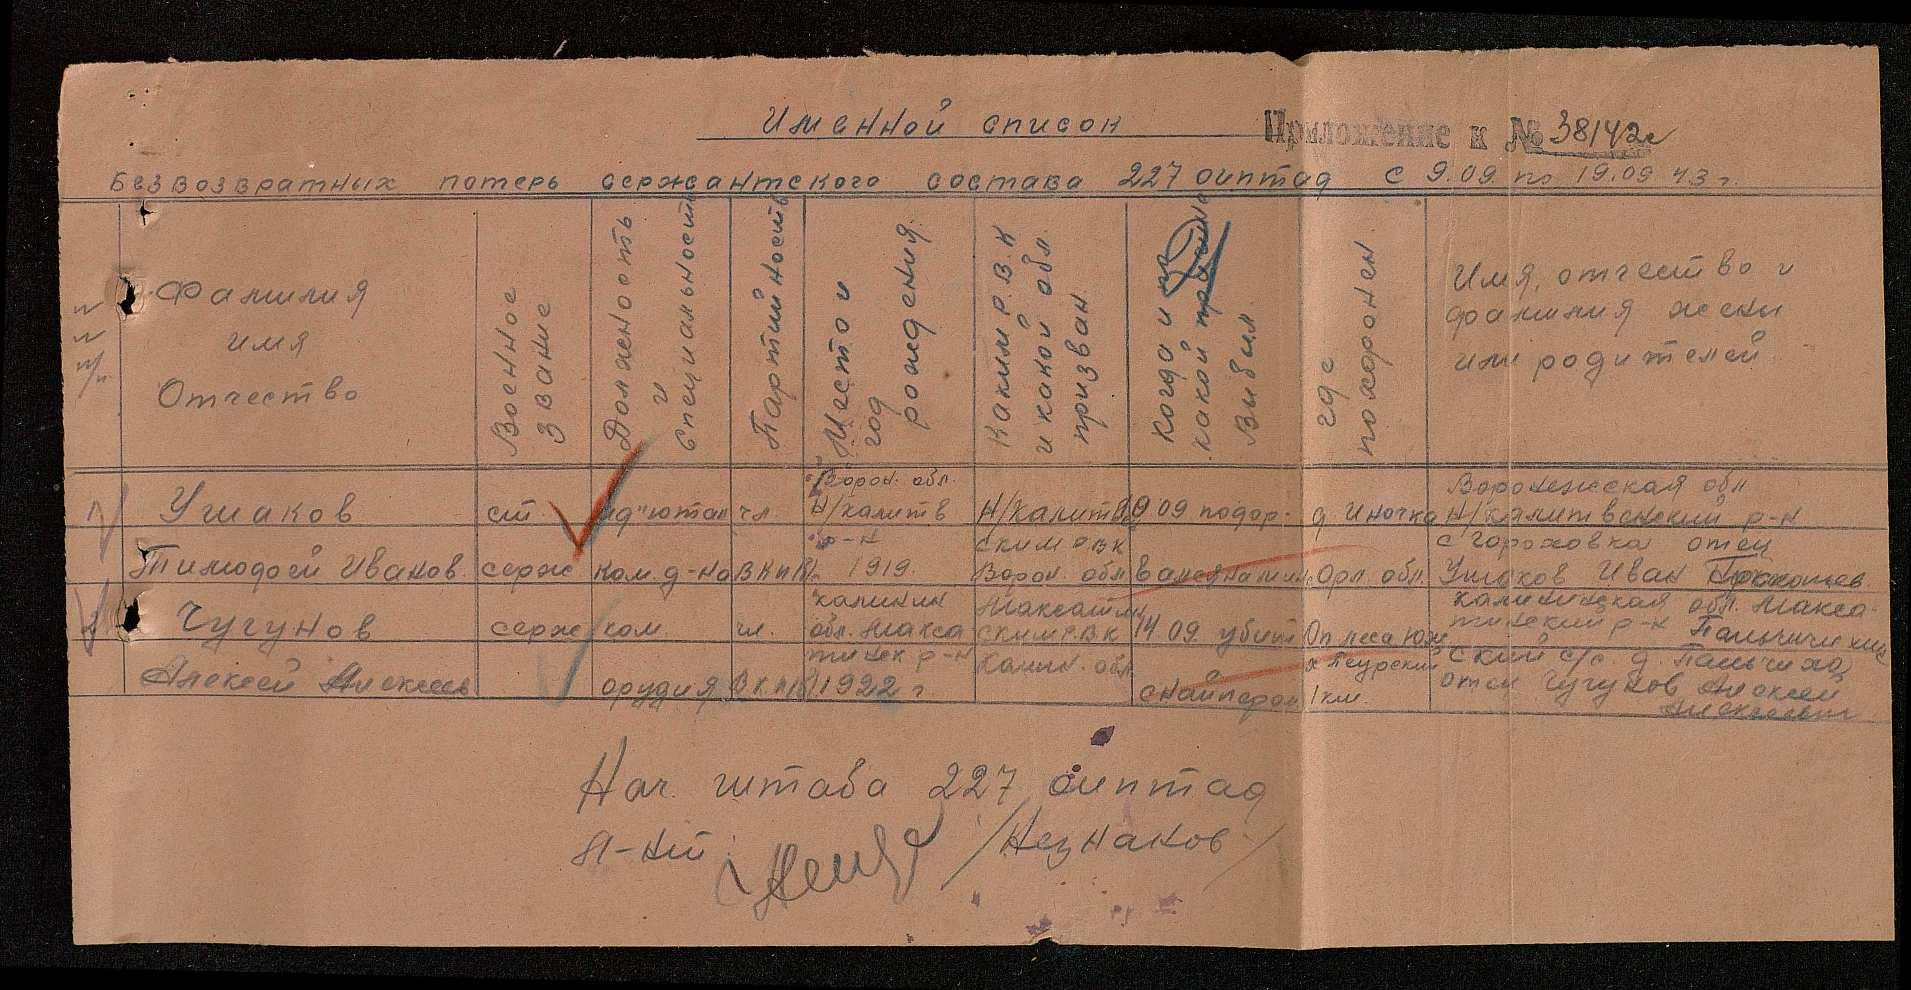 Именной список
Приложение к № 38142с
Безвозвратных потерь сержантского состава 227 оиптад с 9.09 по 19.09 43 г.
Фамилия
имя
Отчество
Военное
звание
Должность
и
специальность
Партийность
Место и
год
рождения
Каким Р.В.К
и какой обл.
призван
Когда и по
какой
выбыл
где
похоронен
Имя, отчество и
фамилия жены
или родителей
1 Ушаков
Тимофей Иванов.
ст
серж
ад"ютан
ком. д-на
чл
ВКПб
Ворон. обл.
Н/калитв
р-н
1919.
Н/калитв
ским РВК
Ворон. обл
09 подор-
д. Иночка
Орл. обл.
Воронежская обл
Н/калитвенский р-н
с Гороховка отец
Ушаков Иван
2 Чугунов
Алексей Алексеев
серж
ком
орудия
чл.
ВКПб
калинин
обл. Макса
тинск р-н
1922 г
Максатин
ским РВК
Калин. обл
14 09. убит
снайпером
Оп леса юж
1 км.
Калининская обл. Макса-
тинский р-н
ский с/с. д. Пальчиха
отец Чугунов Алексей
Алексеевич
Нач. штаба 227 оиптад
л-нт /Незнаков/